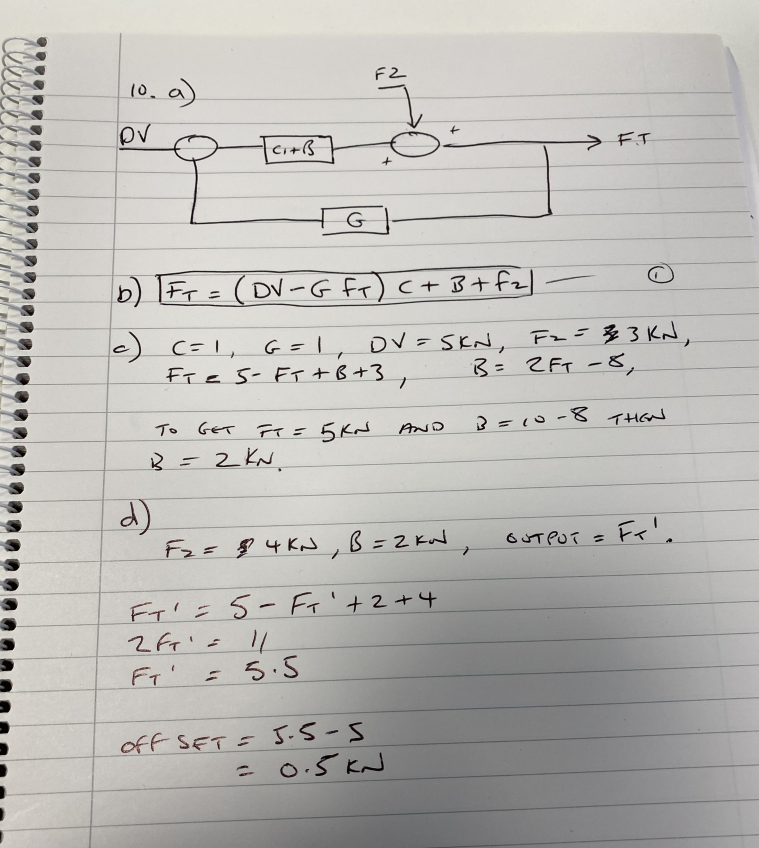 10. a)
F2
DV
C1+B
+
+
F.T
G
b) FT = (DV - G fT) C + B + f2 ①
c) C=1, G=1, DV = 5KN, F2 = 3 KN,
FT = 5- FT + B + 3, B = 2FT - 8,
TO GET FT = 5KN AND B = 10 - 8 THEN
B = 2 KN.
d)
F2 = 4 KN, B = 2 KN, OUTPUT = FT'.
FT' = 5 - FT' + 2 + 4
2 FT' = 11
FT' = 5.5
OFF SET = 5.5 - 5
= 0.5 KN